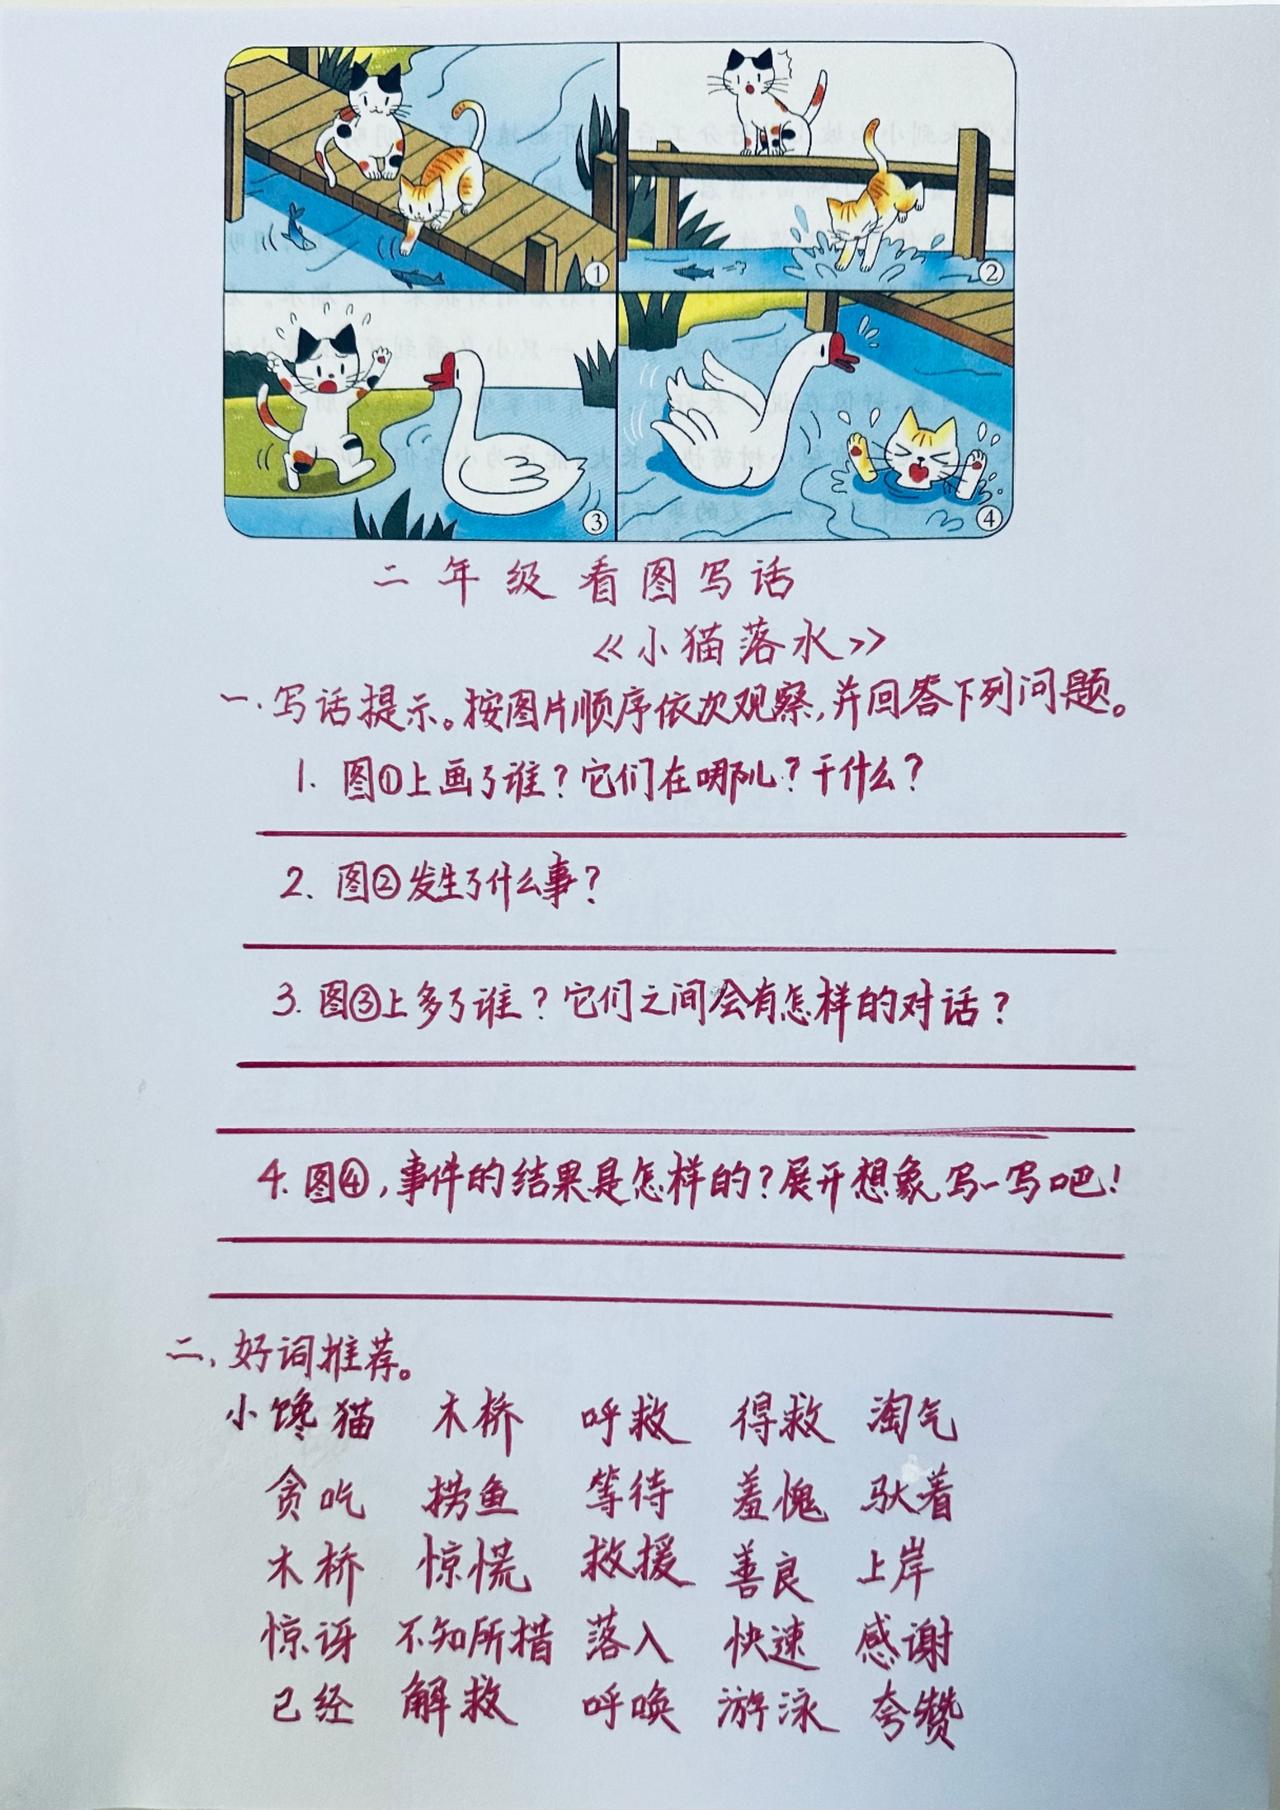 ①
②
③
④
二年级看图写话
《小猫落水》
一.写话提示。按图片顺序依次观察,并回答下列问题。
1. 图①上画了谁?它们在哪儿?干什么?
2. 图②发生了什么事?
3. 图③上多了谁?它们之间会有怎样的对话?
4. 图④,事件的结果是怎样的?展开想象,写一写吧!
二、好词推荐。
小馋猫 木桥 呼救 得救 淘气
贪吃 捞鱼 等待 羞愧 驮着
木桥 惊慌 救援 善良 上岸
惊讶 不知所措 落入 快速 感谢
已经 解救 呼唤 游泳 夸赞